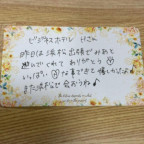 ビジネスホテル Hさん
昨日は浜松出張でみあと
遊んでくれてありがとう
いっぱい な事できて嬉しかったよ
また浜松で会おうね♪